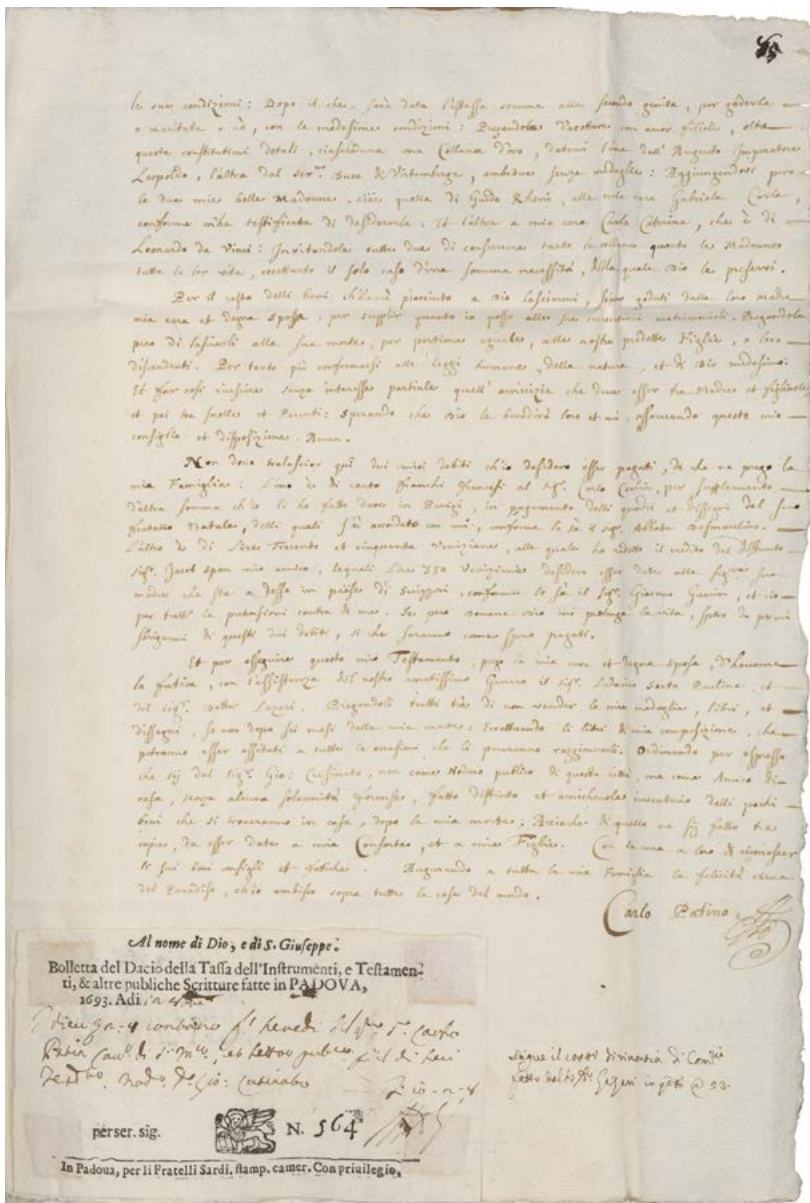 le sue condizioni: Dopo il che, sarà data l'istessa somma alla seconda genita, per goderla
o maritata o nò, con le medesime condizioni: Pregandole d'accettare con amor filiale, oltra
queste constitutioni dotali, ciascheduna una Collana d'oro, datemi l'una dall'Augusto Imperatore
Leopoldo, l'altra dal ser.mo Duca di Virtemberga, ambedue senza medaglie: Aggiungendovi pure
le due mie belle Madonne, cioè quella di Guido Rheni, alla mia cara Gabriela Carla,
conforme m'ha testificato di desiderarla: Et l'altra a mia cara Carla Caterina, che è di
Leonardo da Vinci: Invitandole tutte due di conservare tanto le collane quanto le Madonne
tutta la lor vita, eccettuato il solo caso d'una somma necessità, dalla quale Dio le preservi.
Per il resto delli beni ch'haverà piacciuto a Dio lasciarmi, siano goduti dalla loro madre
mia cara et degna sposa, per supplir quanto io posso alle sue convenzioni matrimoniali. Pregandola
però di lasciarli alla sua morte, per portione eguale, alle nostre predette Figlie, o loro
discendenti. Per tanto più conformarsi alle leggi humane, della natura, et di Dio medesimo.
Et far così riuscire senza interesse partiale quell'amicizia che deve esser tra Madre et figliuole
et poi tra sorelle et Parenti: Sperando che Dio le benedirà loro et mi, osservando questo mio
consiglio et disposizione. Amen.
Non devo tralasciar quì dui miei debiti ch'io desidero esser pagati, di che ne prego la
mia Famiglia: L'uno è di cento franchi francesi al sig.r Carlo, per supplemento
d'altra somma ch'io li ho fatto dare in Parigi, in pagamento delli quadri et dissegni del suo
fratello Natale, delli quali s'è accordato con mi, conforme lo sà il sig.r Abbate
L'altro è di Lire Trecento et cinquanta Veniziane, alle quale ho ridotto il credito del deffunto
sig.r Jacob Spon mio amico, lequali Lire 350 Veniziane desidero esser date alla sig.ra sua
madre che sta a in paese di Suizzeri, conforme lo sà il sig.r Giacomo, et ciò
per tutte le pretensioni contra di me. Se però Domene Dio mi prolunga la vita, spero da
sbrigarmi di questi dui debiti, si che saranno come spero pagati.
Et per esseguire questo mio Testamento, prego la mia cara et degna sposa, d'haverne
la fatica, con l'assistenza del nostro amatissimo Genero il sig.r Ludovico Santa Paulina, et
del sig.r Dottor Lazari. Pregandoli tutti trè di non vender le mie medaglie, libri, et
dissegni, se non dopo sei mesi della mia morte: Eccettuando li libri di mia composizione, che
potranno esser esitati a tutte le occasioni che li poveranno. Ordinando per espresso
che sij dal sig.r Gio: Cusinato, non come Nodaro publico di questa città, ma come Amico di
casa, senza alcuna solennità forense, fatto distinto et amichevole inventario delli pochi
beni che si troveranno in casa, dopo la mia morte; Acciochè di quello ne sij fatto tre
copie, da esser date a mia Consorte, et a mie Figlie. Con la cura a loro di riconoscer
li suoi boni consigli et fatiche. Augurando a tutta la mia Famiglia la felicità eterna
del Paradiso, ch'io ambisco sopra tutte le cose del mondo.
Carlo Patino
Al nome di Dio, e di S. Giuseppe.
Bolletta del Dacio della Tassa dell'Instrumenti, e Testamen-
ti, & altre publiche Scritture fatte in PADOVA,
1693. Adi
heredi Carlo
Patin et Lettor publico
per ser. sig. N. 564
In Padoua, per li Fratelli Sardi, stamp. camer. Con priuilegio,